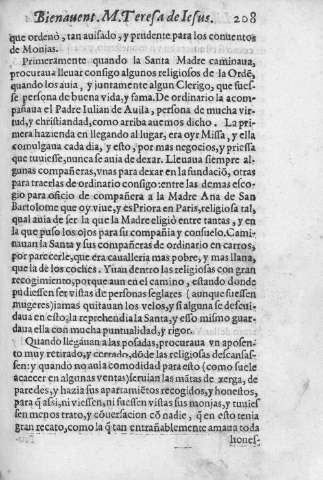 Bienauent. M. Teresa de Iesus. 208
que ordenò, tan auisado, y prudente para los conuentos
de Monjas.
Primeramente quando la Santa Madre caminaua,
procuraua lleuar consigo algunos religiosos de la Ordē,
quando los auia, y juntamente algun Clerigo, que fues-
se persona de buena vida, y fama. De ordinario la acom-
pañaua el Padre Iulian de Auila, persona de mucha vir-
tud, y christiandad, como arriba auemos dicho. La pri-
mera hazienda en llegando al lugar, era oyr Missa, y ella
comulgaua cada dia, y esto, por mas negocios, y priessa
que tuuiesse, nunca se auia de dexar. Lleuaua siempre al-
gunas compañeras, vnas para dexar en la fundaciō, otras
para traerlas de ordinario consigo: entre las demas esco-
gio para oficio de compañera a la Madre Ana de San
Bartolome que oy viue, y es Priora en Paris, religiosa tal,
qual auia de ser la que la Madre eligiò entre tantas, y en
la que puso los ojos para su compañia y consuelo. Cami-
nauan la Santa y sus compañeras de ordinario en carros,
por parecerle, que era caualleria mas pobre, y mas llana,
que la de los coches. Yuan dentro las religiosas con gran
recogimiento, porque aun en el camino, estando donde
pudiessen ser vistas de personas seglares (aunque fuessen
mugeres) jamas quitauan los velos, y si alguna se descui-
daua en esto, la reprehendia la Santa, y esso mismo guar-
daua ella con mucha puntualidad, y rigor.
Quando llegàuan a las posadas, procuraua vn aposen-
to muy retirado, y cerrado, dōde las religiosas descansas-
sen: y quando no auia comodidad para esto (como suele
acaecer en algunas ventas) seruian las mātas de xerga, de
paredes, y hazia sus apartamiētos recogidos, y honestos,
para q̄ assi, ni viessen, ni fuessen vistas sus monjas, y tuuies
sen menos trato, y cōuersacion cō nadie, q̄ en esto tenia
gran recato, como la q̄ tan entrañablemente amaua toda
hones-